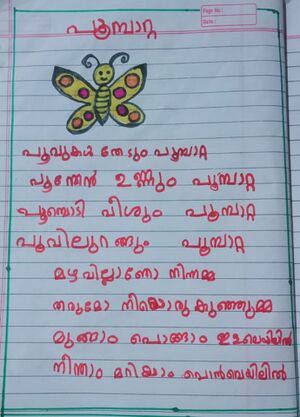 Page No :
Date :
പൂമ്പാറ്റ
പൂവുകൾ തേടും പൂമ്പാറ്റ
പൂന്തേൻ ഉണ്ണും പൂമ്പാറ്റ
പൂമ്പൊടി വീശും പൂമ്പാറ്റ
പൂവിലുറങ്ങും പൂമ്പാറ്റ
മഴവില്ലാണോ നിന്നമ്മ
തരുമോ നീയൊരു കുഞ്ഞുമ്മ
മുങ്ങാം പൊങ്ങാം
നീന്താം മറിയാം പൊൻവെയിലിൽ